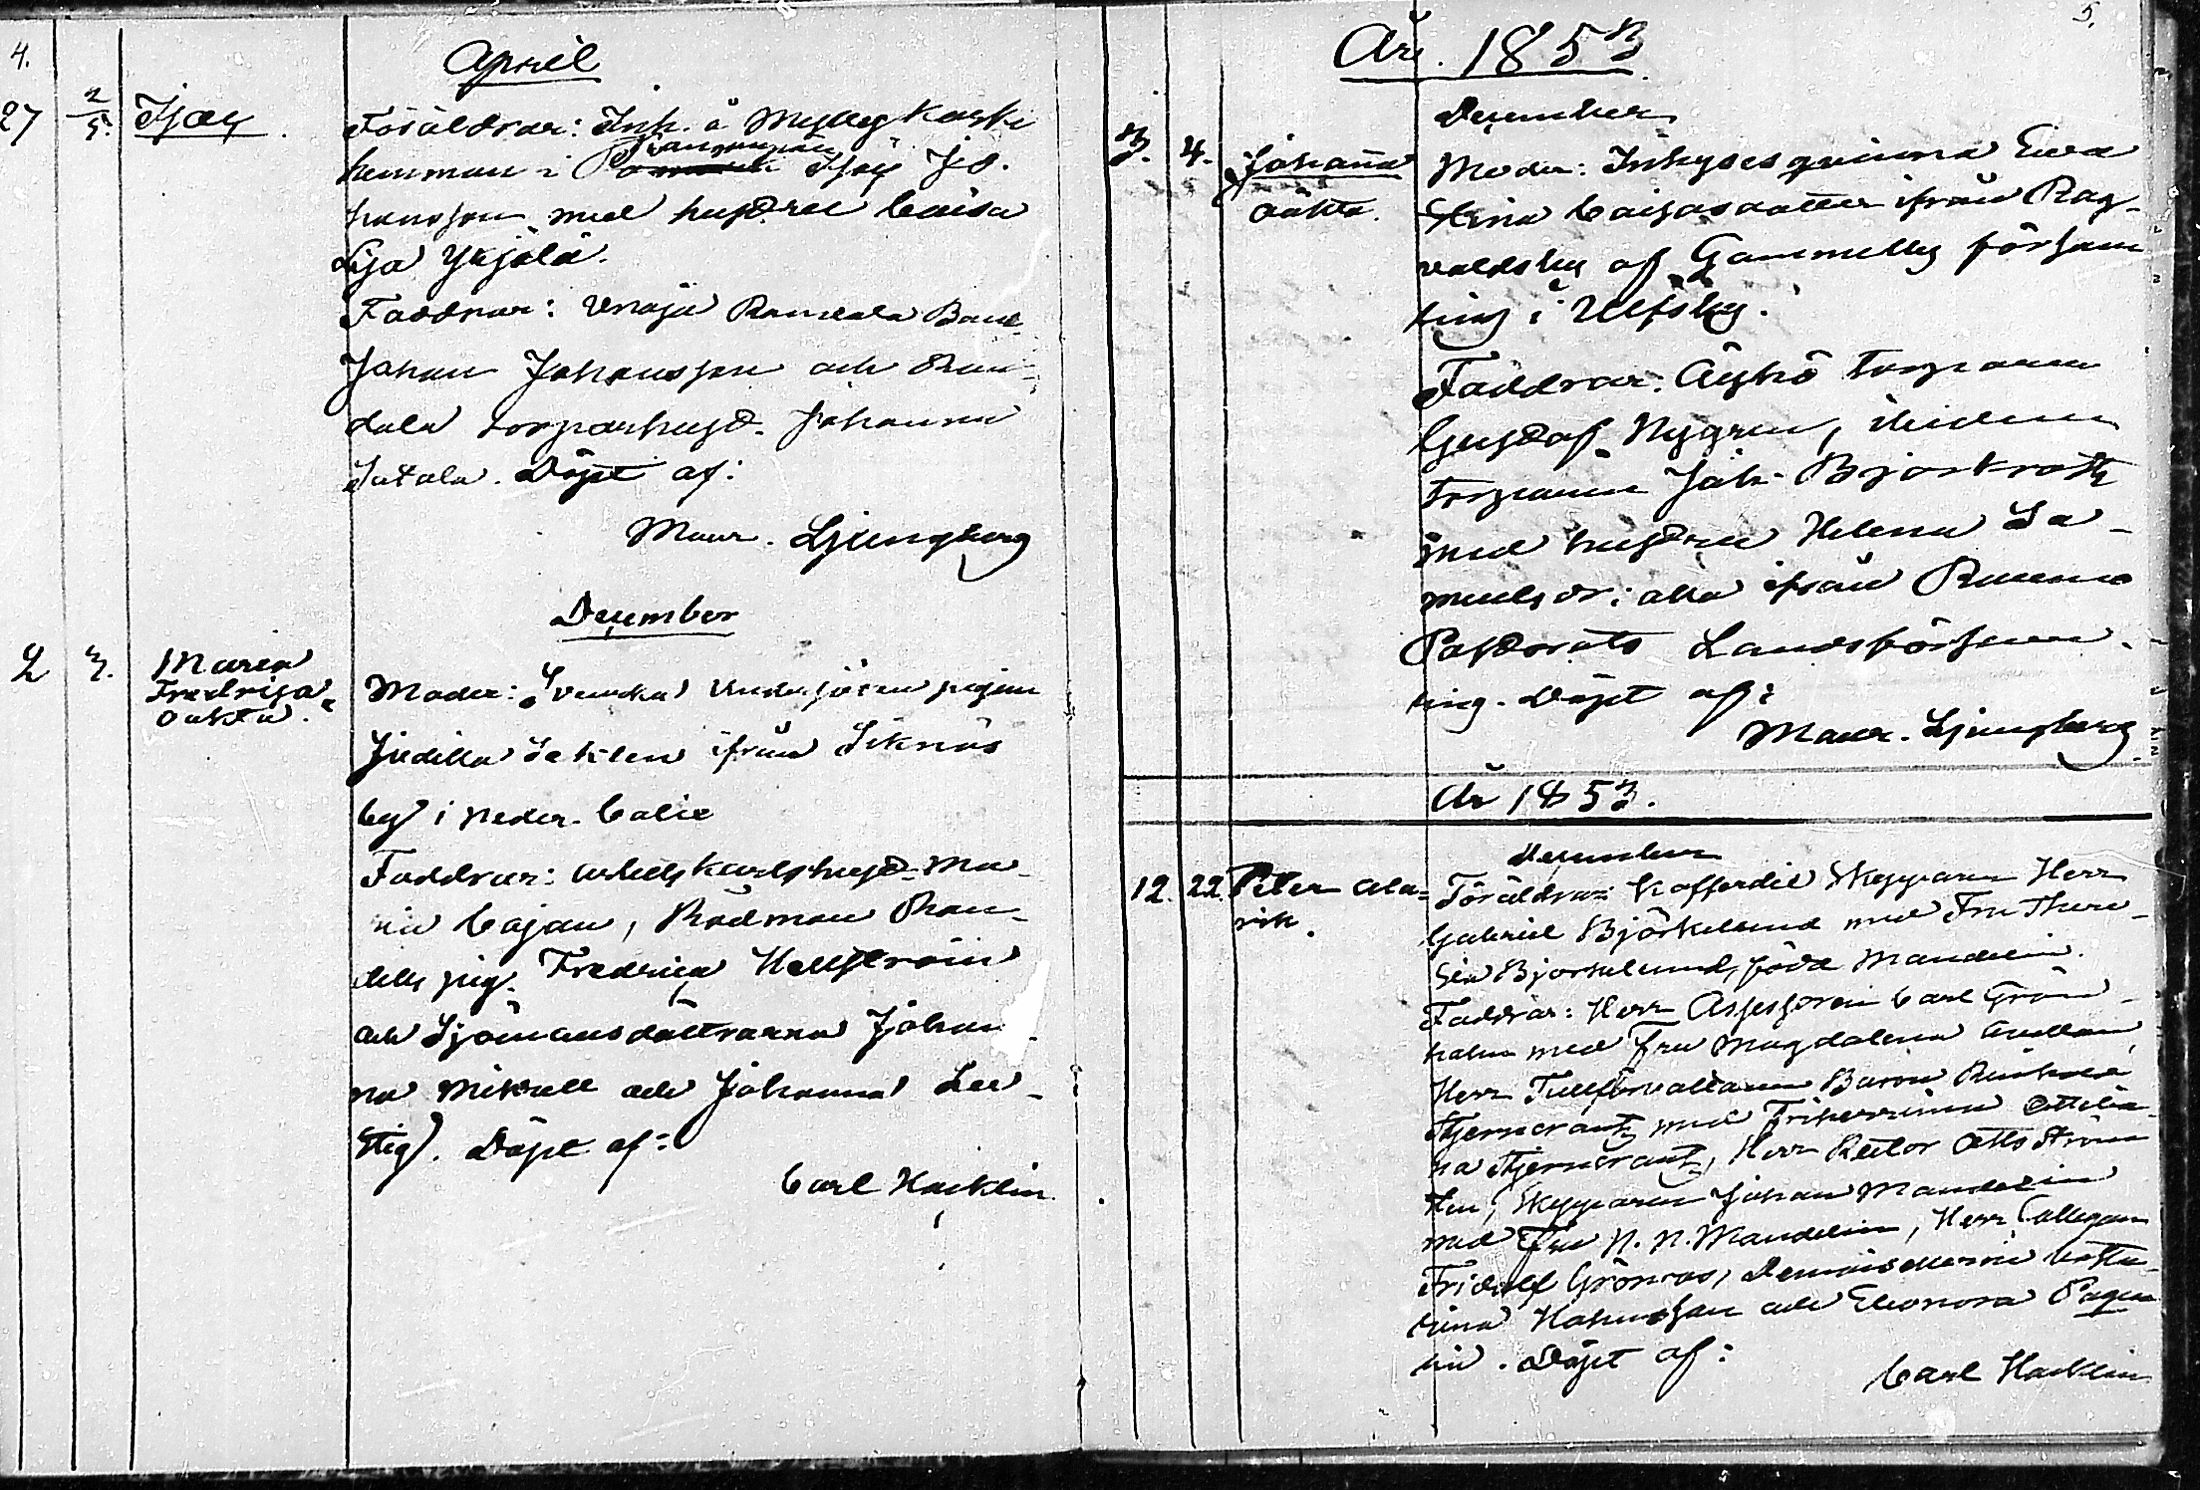 4.
April
27 2/5. Isac.
Föräldrar: Inh. å Myllykoski
hemman i Isac Jo-
hansson med hustru Caisa
Lisa Yrjölä.
Faddrar: Unaja Randala Bond.
Johan Johansson och Ran-
dala torparhust. Johanna
Satala. Döpt af:
Maur. Ljungberg
December
2 3. Maria
Fredrica
oäkta.
Moder: Svenska undersåten pigan
från Siknäs
by i Neder-Calix
Faddrar: arbetskarlshust. Ma-
ria Cajan, Rådman Ran-
dells pig. Fredrica Hellström
och Sjömansdöttrarna Johan-
na Mikaell och Johanna Lee-
stig. Döpt af:
Carl Hacklin
5.
År. 1853
December
3. 4. Johanna
oäkta.
Moder: Inhyses qvinna Eva
Stina Caisasdotter ifrån Rag-
valdsby af Gammelby försam
ling i Ulfsby.
Faddrar: Äyhö torparen
Gustaf Nygren, ibidem
torparen Joh. Björkroth
med hustru Helena Sa-
muelsdr; alla ifrån Raumo
Pastorats Landsförsam-
ling. Döpt af:
Maur. Ljungberg
År 1853.
December
12. 22. Peter Ala-
rik.
Föräldrar: Kofferdie Skepparen Herr
Gabriel Björkelund med Fru There-
sia Björkelund, född Mandelin.
Faddrar: Herr Assessoren Carl Grön-
holm med Fru Magdalena Avellan,
Herr Tullförvaltaren Baron Reinhold
Stjerncrantz med Friherrinnan Ottilia-
na Stjerncrantz, Herr Rector Otto Ström
sten, Skepparen Johan Mandelin
med Fru N. N. Mandelin, Herr Collegan
Fridolf Grönros, Demoisellerna Catha-
rina Hahnsson och Eleonora Page-
lin. Döpt af:
Carl Hacklin